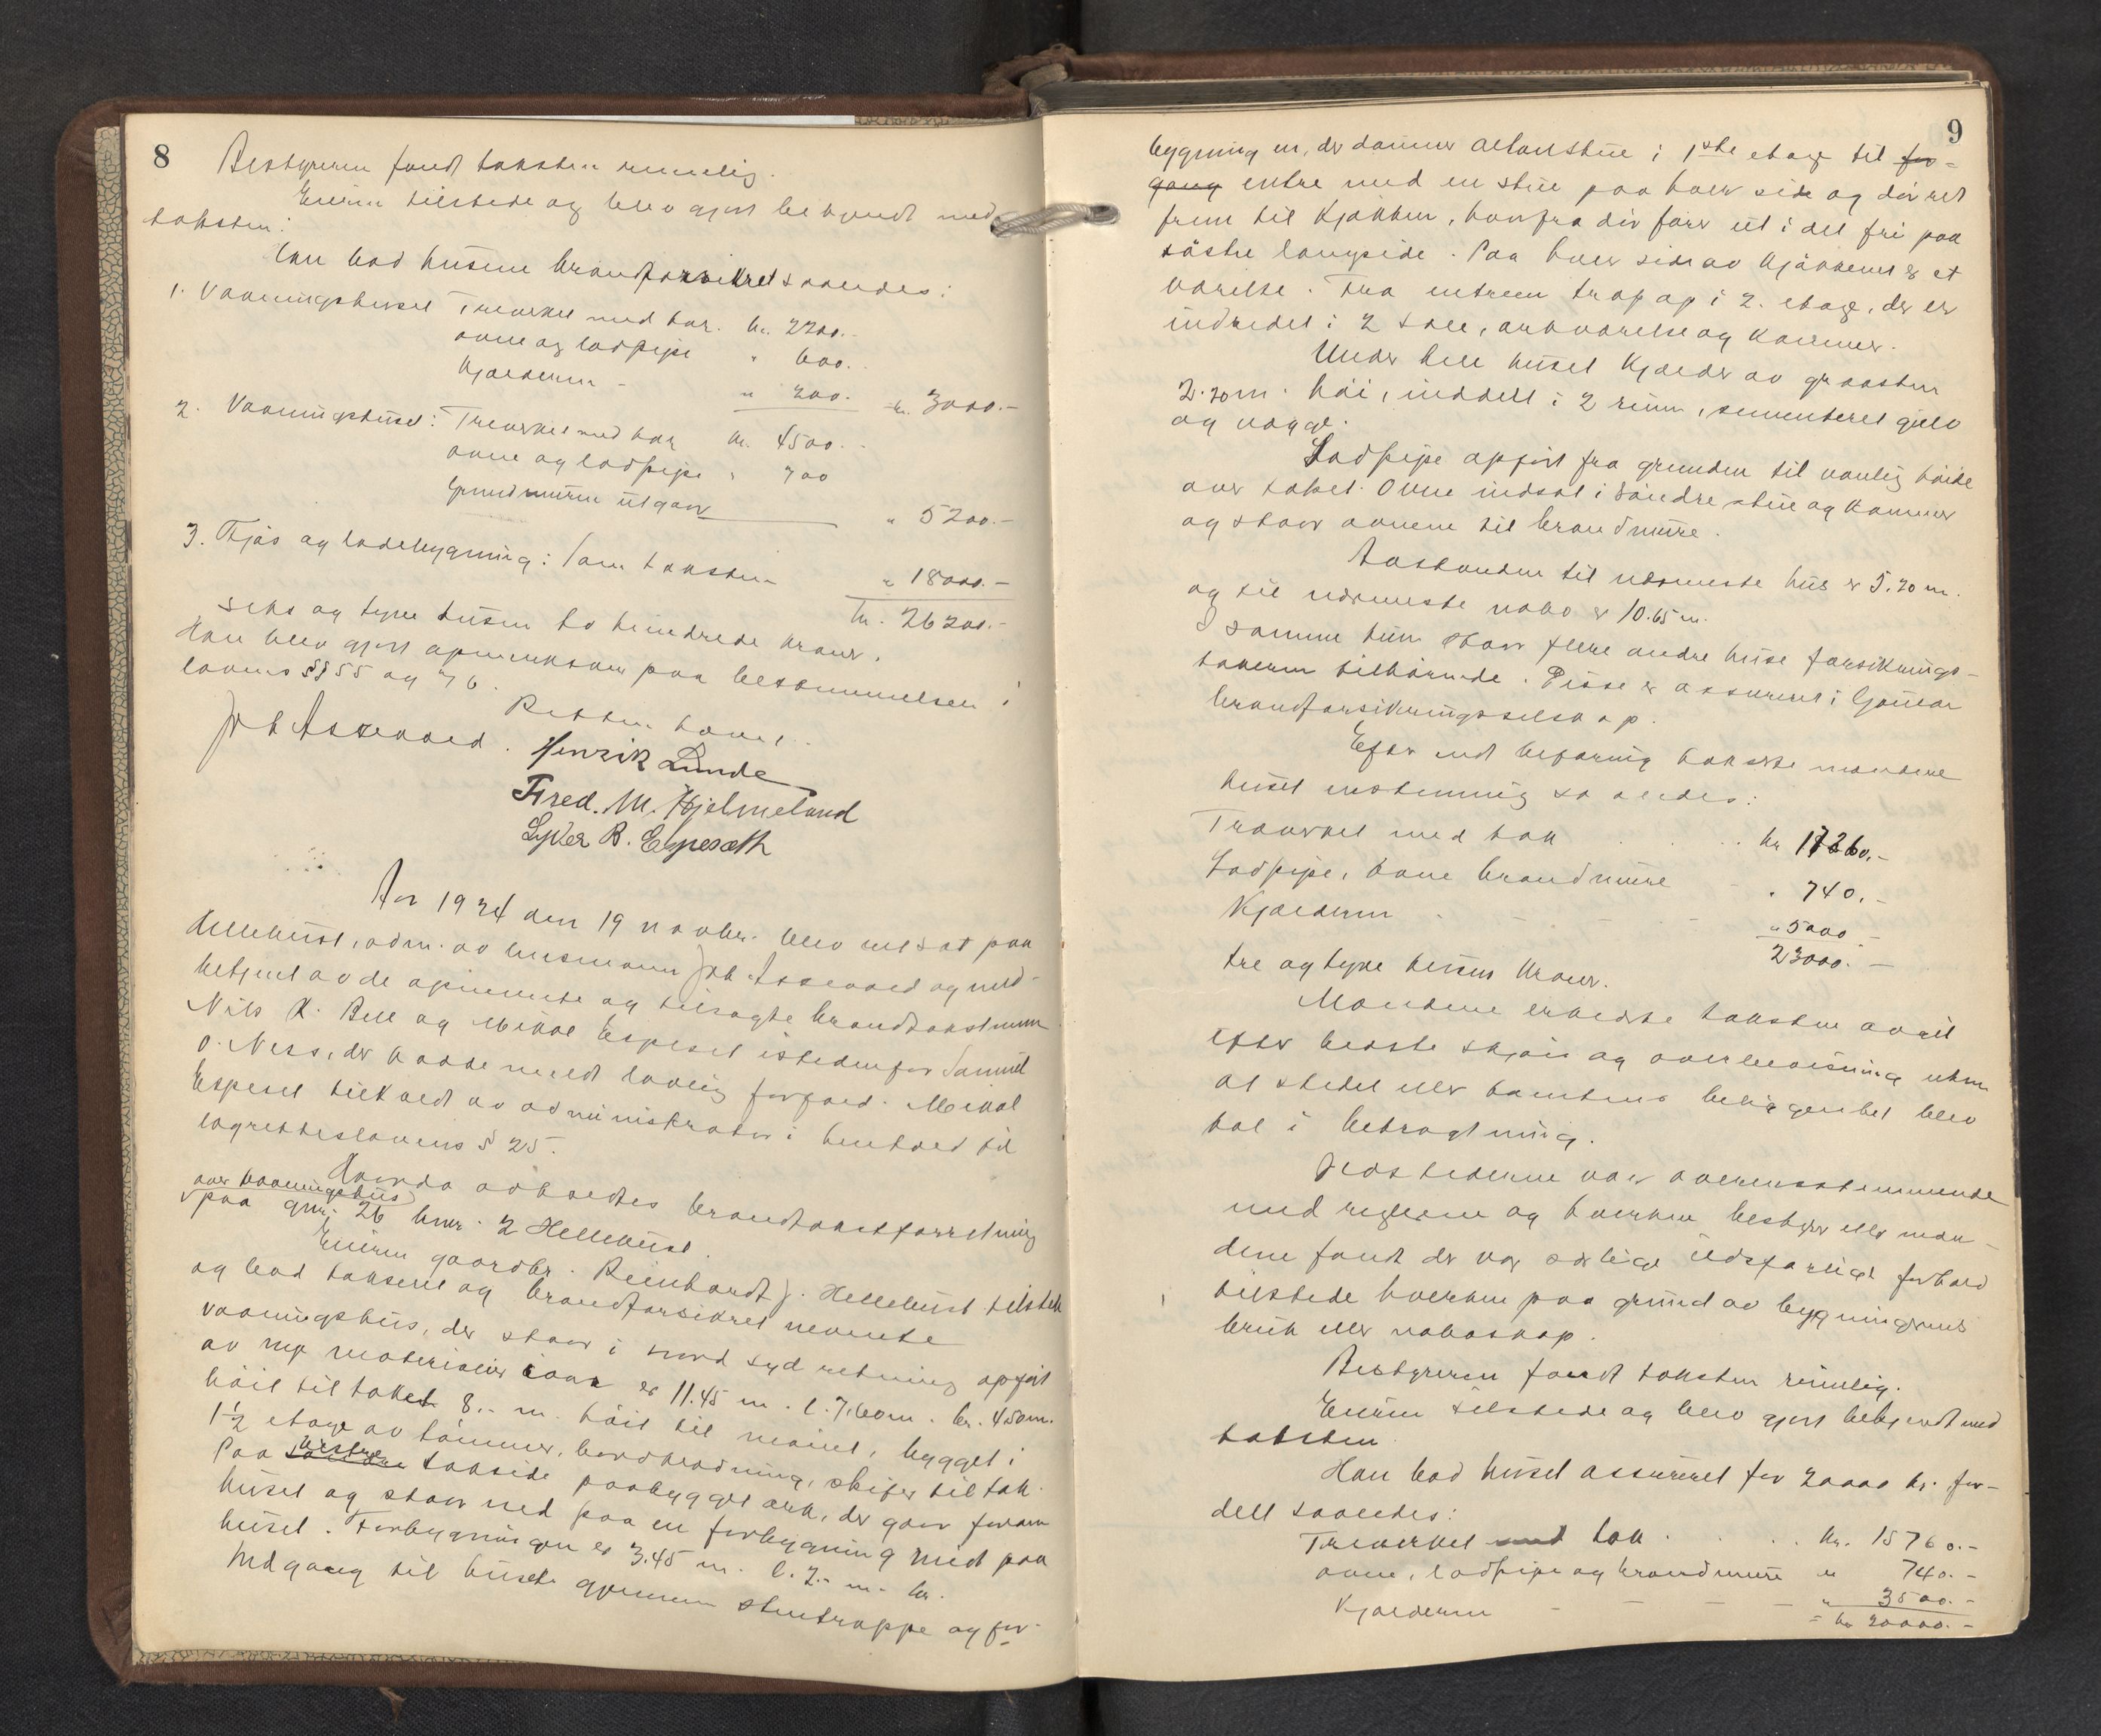 8
Bestyreren fandt taksten rimelig.
Eieren tilstede og blev gjort bekjendt med
taksten:
Han bad husene brandforsikret saaledes:
1. Vaaningshuset Treverket med tak. kr. 2200.-
ovne og ladpipe " 600.
Kjælderen - " 200. kr. 3000.-
2. Vaaningshuset: Treverket med tak kr. 4500.-
ovne og ladpipe " 700
Grundmuren utgaar " 5200.-
3. Fjøs og ladebygning: som taksten " 18000.-
kr. 26200.-
seks og tyve tusen to hundrede kroner.
Han blev gjort opmerksom paa bestemmelsen i
lovens §§ 55 og 76.
Retten hævet.
Joh Aasevaag. Henrik Lunde
Fred. M. Hjelmeland
Lyder B. Espeseth
Aar 1924 den 19 novbr. blev ret sat paa
Hellebust, adm. av lensmann Joh. Aasevaag og med-
betjent av de opnævnte og tilsagte brandtakstmenn
Nils K. Bell og Mikal Espeset istedenfor Samuel
O. Ness, der hadde meldt lovlig forfald. Mikal
Espeset tilkaldt av administrator i henhold til
lagretteslovens § 25.
Hvorda avholdtes brandtakstforretning
over vaaningshus
paa gnr. 26 bnr. 2 Hellebust.
Eieren gaardbr. Reinhardt J. Hellebust tilstede
og bad taksert og brandforsikret nevnte
vaaningshus, der staar i nord syd retning opført
av nye materialier iaar er 11.45 m. l. 7.60 m. br. 4.50 m.
høit til taket 8.- m. høit til mønet, bygget i
1½ etage av tømmer, bordklædning, skifer til tak.
Paa søndre vestre takside paabygget ark, der gaar foran
huset og staar ned paa en forbygning midt paa
huset. Forbygningen er 3.45 m. l. 2.- m. br.
Indgang til huset gjennem stentrappe og for-
9
bygningen, der danner altanstue i 1ste etage til for-
gang entre med en stue paa hver side og dør ret
frem til kjøkken, hvorfra dør fører ut i det fri paa
østre langside. Paa hver side av kjøkkenet er et
værelse. Fra entreen trap op i 2. etage, der er
indredet i 2 sale, arkværelse og kammer.
Under hele huset kjælder av graasten
2.20 m. høi, inddelt i 2 rum, sementeret gulv
og vægge.
Ladpipe opført fra grunden til vanlig høide
over taket. Ovne indsat i søndre stue og kammer
og staar ovnene til brandmure.
Avstanden til nærmeste hus er 5.20 m.
og til nærmeste nabo er 10.65 m.
I samme tun staar flere andre huse forsikrings-
takeren tilhørende. Disse er assureret i Gjaular
brandforsikringsselskap.
Efter endt befaring takserte mændene
huset enstemmig saaledes:
Treverket med tak . . . . kr 17260.-
Ladpipe, ovne brandmure - " 740.-
Kjælderen - - - - - " 5000.-
23000.-
tre og tyve tusen kroner.
Mændene erklærte taksten avgit
efter bedste skjøn og overbevisning uten
at stedet eller tomtens beliggenhet blev
tat i betragtning.
Ildstederne var overensstemmende
med reglerne og hverken bestyrer eller mæn-
dene fandt der var særlige ildsfarlige forhold
tilstede hverken paa grund av bygningens
bruk eller naboskap.
Bestyreren fandt taksten rimelig.
Eieren tilstede og blev gjort bekjendt med
taksten
Han bad huset assureret for 20000 kr. for-
delt saaledes:
Treverket med tak . . . . kr. 15760.-
ovne, ladpipe og brandmure " 740.-
Kjælderen - - - - " 3500.-
= kr 20000.-